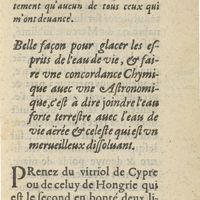 tement qu'aucun de tous ceux qui
m'ont deuancé.
Belle façon pour glacer les es-
prits de l'eau de vie, & fai-
re vne concordance Chymi-
que auec vne Astronomi-
que, c'est à dire joindre l'eau
forte terrestre auec l'eau de
vie aërée & celeste qui est un
merueilleux dissoluant.
PRenez du vitriol de Cypre
ou de celuy de Hongrie qui
est le second en bonté deux li-